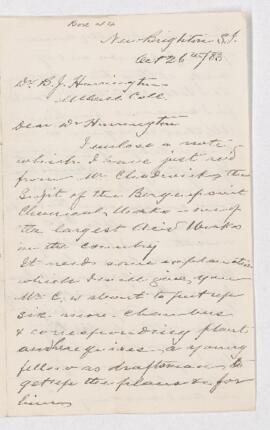 Box 44
New Brighton S.I.
Oct 26th/83
Dr B. J. Harrington
McGill Coll.
Dear Dr Harrington
I enclose a note
which I have just rec'd
from Mr Chadwick the
Supt of the Bergenpoint
Chemical Works - one of
the largest Acid Works
in the country
It needs some explanation
which I will give you
Mr C. is about to put up
six more chambers
& corresponding plant
and requires a young
fellow as draftsman to
get up the plans &c for
him